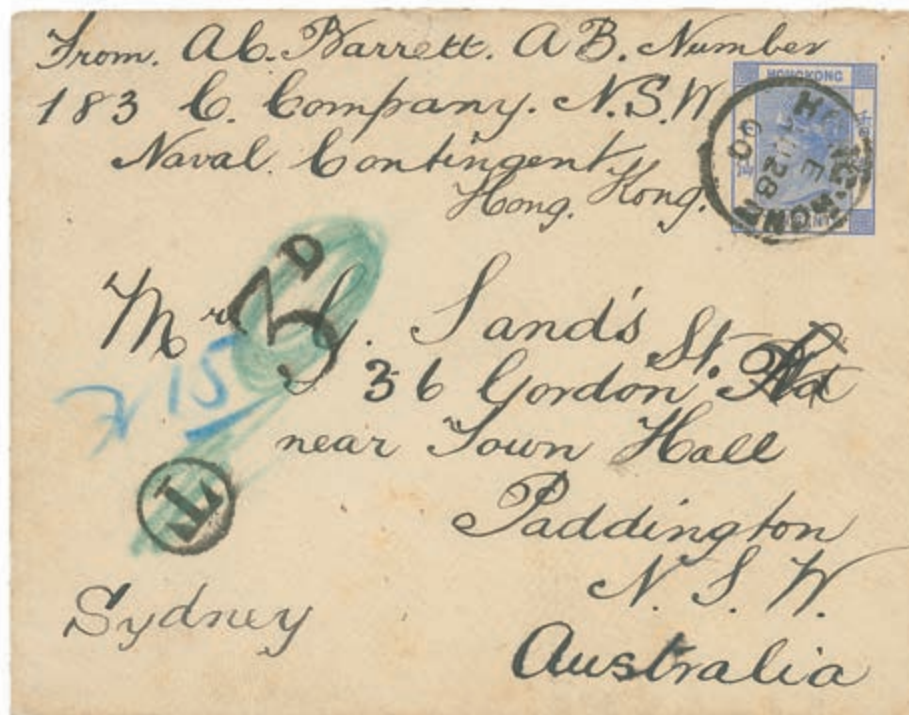 From. A.C. Barrett. A B. Number
183 C. Company. N.S.W
Naval Contingent
Hong. Kong.
HONGKONG
3D
Mr G. Sand's
36 Gordon St.
15
near Town Hall
T
Paddington
N. S. W.
Sydney
Australia